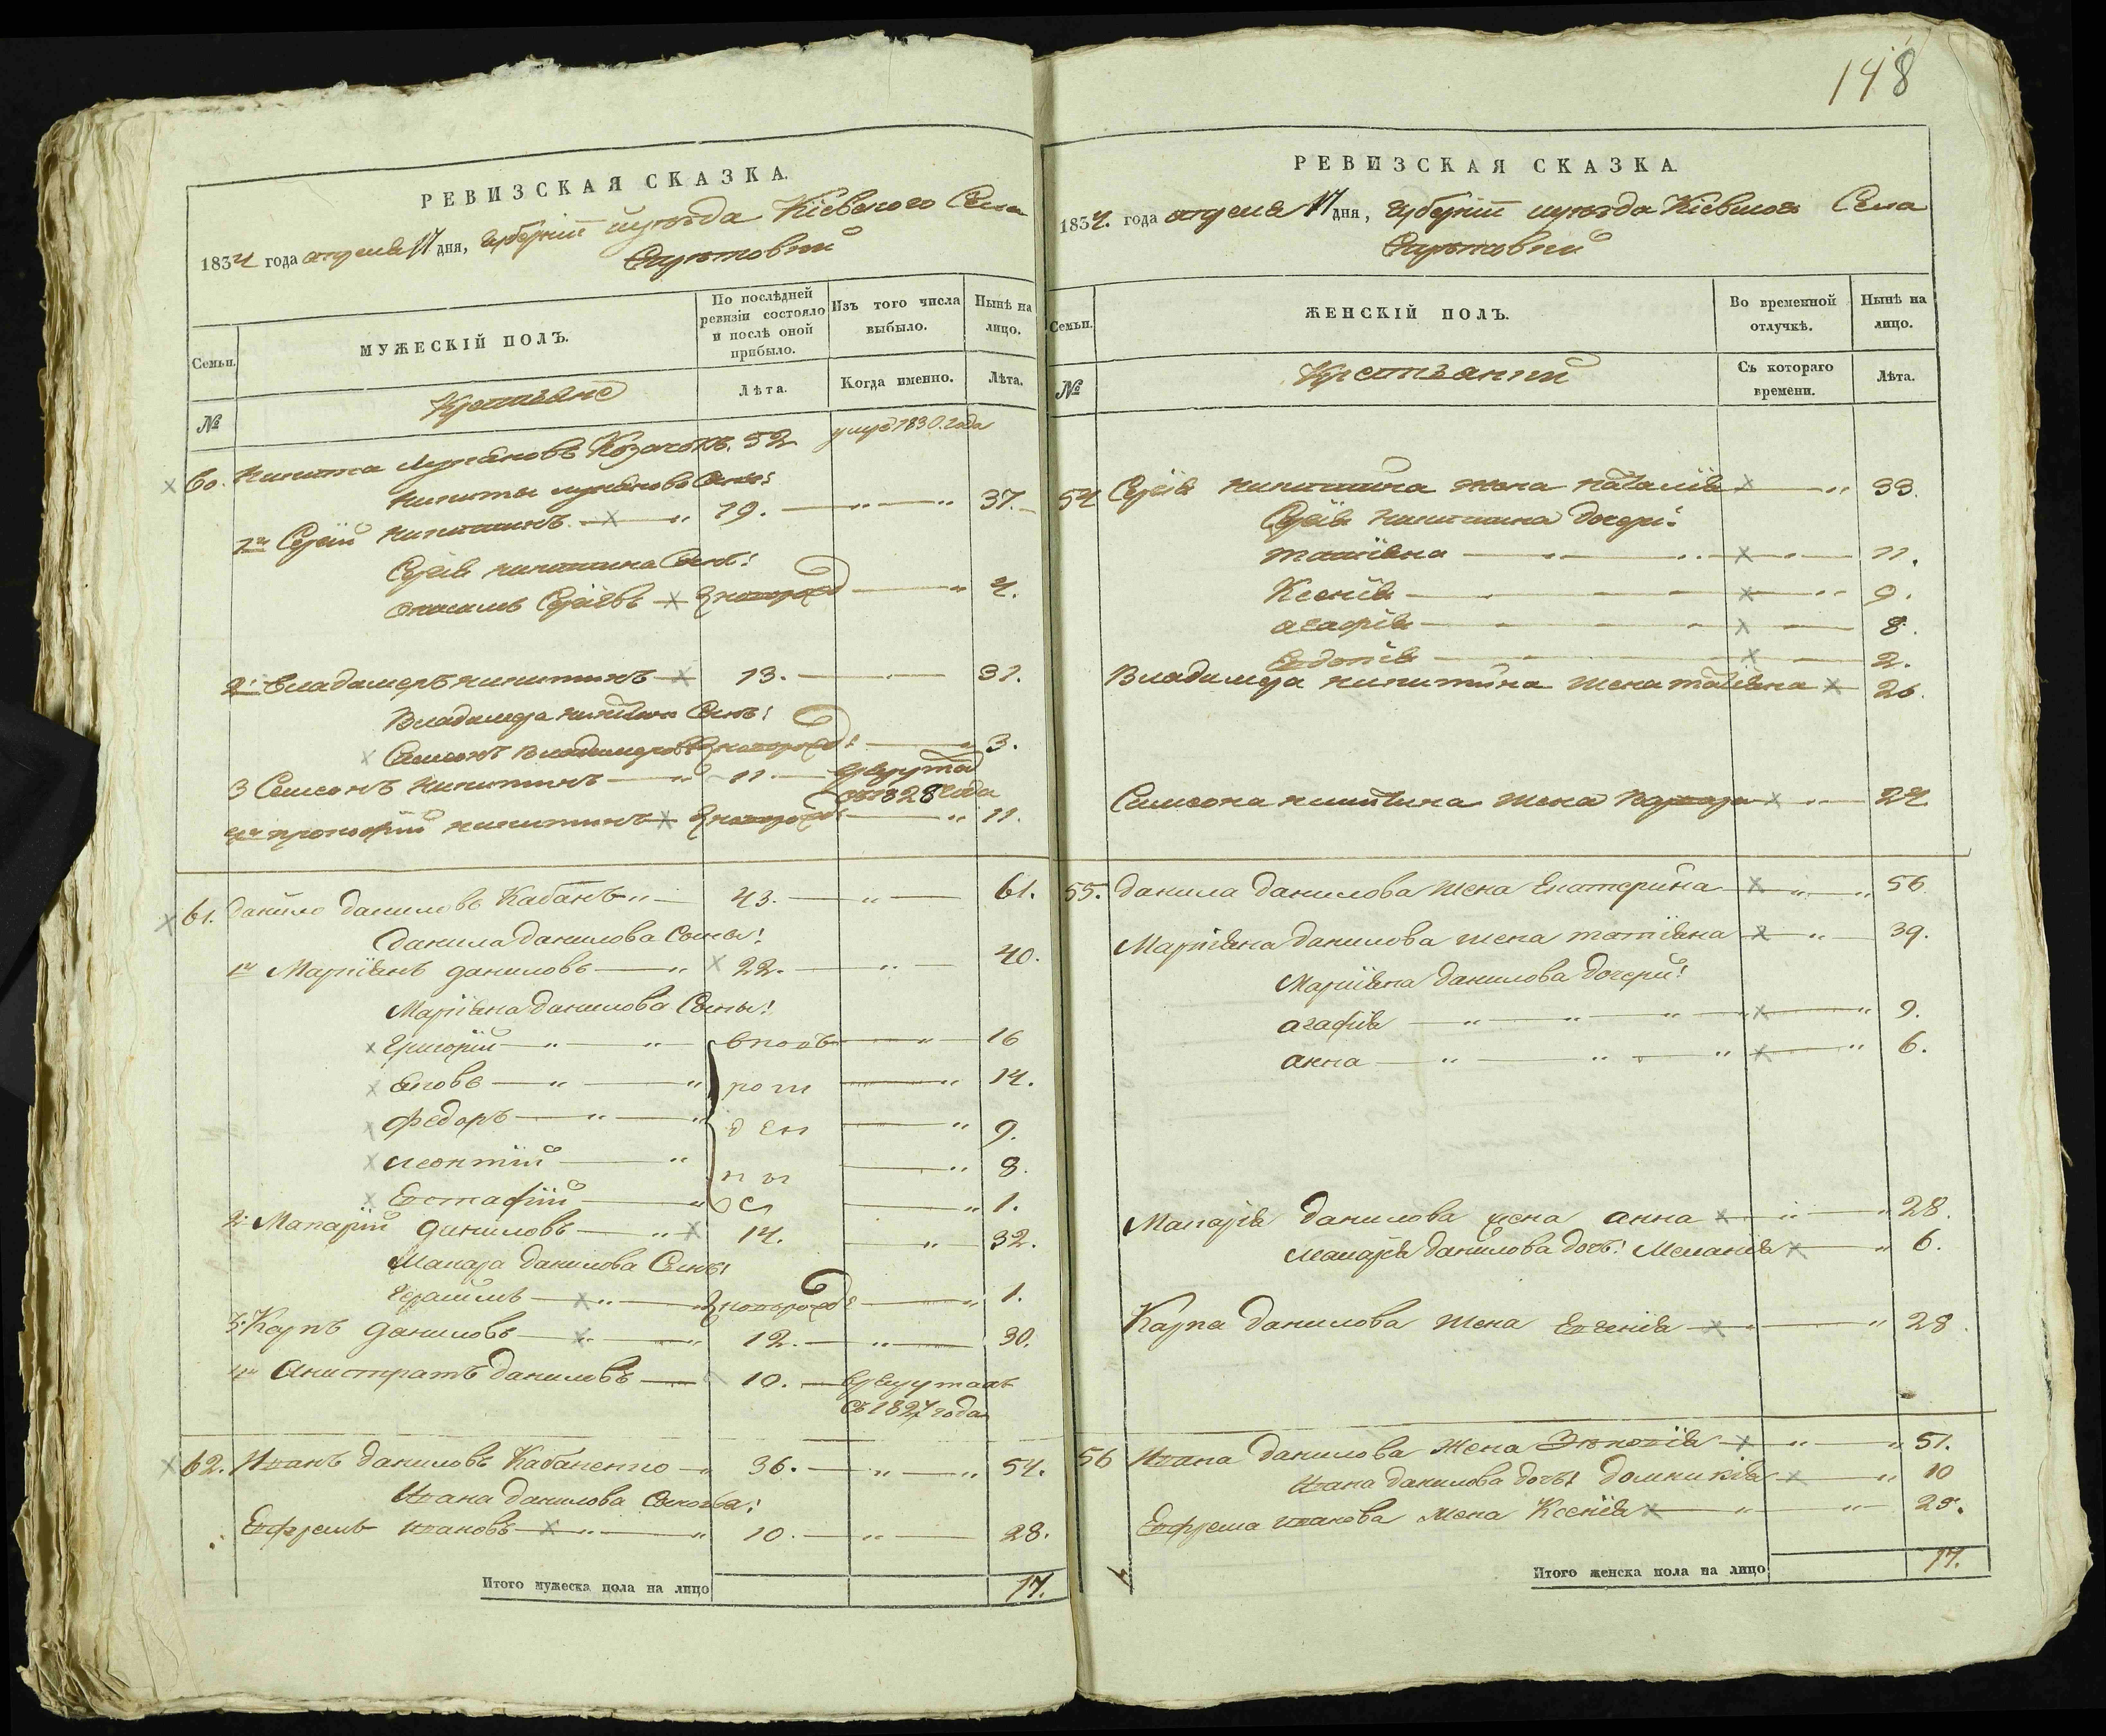 148
РЕВИЗСКАЯ СКАЗКА.
1834 года апреля 17 дня, Губернии и уезда Кіевского Села
МУЖЕСКІЙ ПОЛЪ.
Семьи.
По послѣдней ревизіи состояло и послѣ оной прибыло.
Изъ того числа выбыло.
Нынѣ на лицо.
№
Крестьяне
Лѣта.
Когда именно.
Лѣта.
60. Никита Козачокъ. 52 умре 1830. года
Никиты Сыны:
1й Сергій Никитинъ 19. 37.
Сергія Никитина Сынъ:
Сергіевъ новорожд 4.
2й Владимеръ Никитинъ 13. 31.
Владимера Никитина Сынъ:
Семионъ Владимеровъ новорожд: 3.
3 Семионъ Никитинъ 11. в рекрутах с 1828 года
4й Прокофій Никитинъ новорожд: 11.
61. Данило Даниловъ Кабанъ 43. 61.
Данила Данилова Сыны:
1й Маркіянъ Даниловъ 22. 40.
Маркіяна Данилова Сыны:
Григорій вновь 16
Яковъ рож 14.
Федоръ ден 9.
Леонтій 8.
Евстафій 1.
2й Макарій Даниловъ 14. 32.
Макара Данилова Сынъ:
Герасимъ новорожд: 1.
3й Карпъ Даниловъ 12. 30.
4й Анистратъ Даниловъ 10. в рекрутахъ
съ 1827 года
62. Иванъ Даниловъ Кабаненко 36. 54.
Ивана Данилова Сыновья:
Ефремъ Ивановъ 10. 28.
Итого мужеска пола на лицо 17.
РЕВИЗСКАЯ СКАЗКА.
1834. года апреля 17 дня, Губерніи и уезда Кіевского Села
Семьи.
ЖЕНСКІЙ ПОЛЪ.
Во временной отлучкѣ.
Нынѣ на лицо.
№
Крестьянки
Съ котораго времени.
Лѣта.
54 Сергія Никитина жена Наталія 33.
Сергія Никитина дочери:
Татіяна 11.
Ксенія 9.
Агафія 8.
Евдокія 2.
Владимера Никитина жена Татіяна 26.
Симеона Никитина жена Варвара 24
55. Данила Данилова жена Екатерина 56
Маркіяна Данилова жена Татіяна 39.
Маркіяна Данилова дочери:
Агафія 9.
Анна 6.
Макарія Данилова жена Анна 28.
Макарія Данилова дочь: Меланія 6.
Карпа Данилова жена Евгенія 28.
56 Ивана Данилова жена 51.
Ивана Данилова дочь: Домникія 10
Ефрема Иванова жена Ксенія
Итого женска пола на лицо 17.